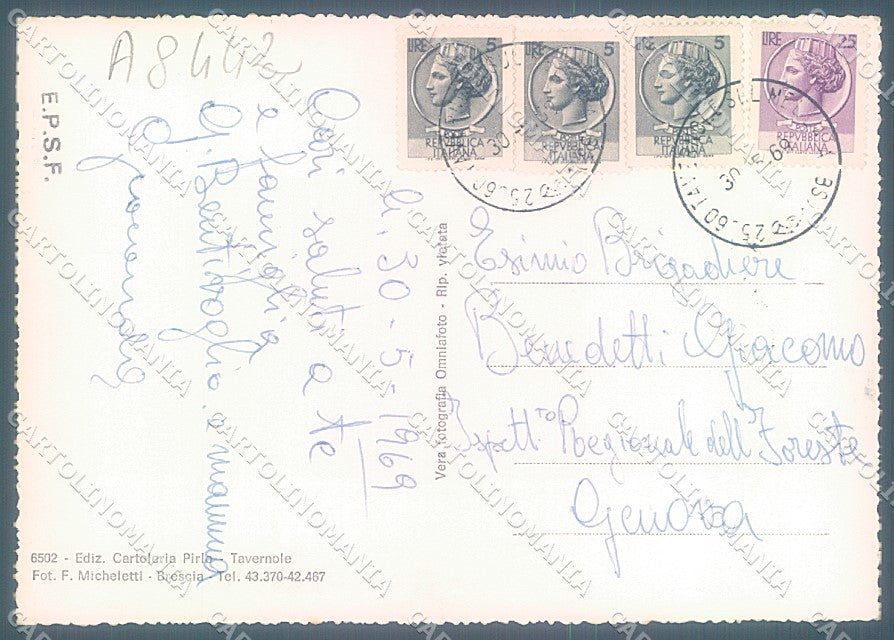 A8442
E.P.S.F.
LIRE 5
REPVBBLICA
ITALIANA
LIRE 5
REPVBBLICA
ITALIANA
LIRE 5
REPVBBLICA
ITALIANA
LIRE 25
REPVBBLICA
ITALIANA
30 5 69
lì, 30-5-1969
Cari saluti a te
e famiglia
G. Bentivoglio, e mamma
Vera fotografia Omniafoto - Rip. vietata
Esimio Brigadiere
Benedetti Giacomo
Ispett.to Regionale dell'Foreste
Genova
6502 - Ediz. Cartoleria Pirlo - Tavernole
Fot. F. Micheletti - Brescia - Tel. 43.370-42.467
CARTOLINOMANIA